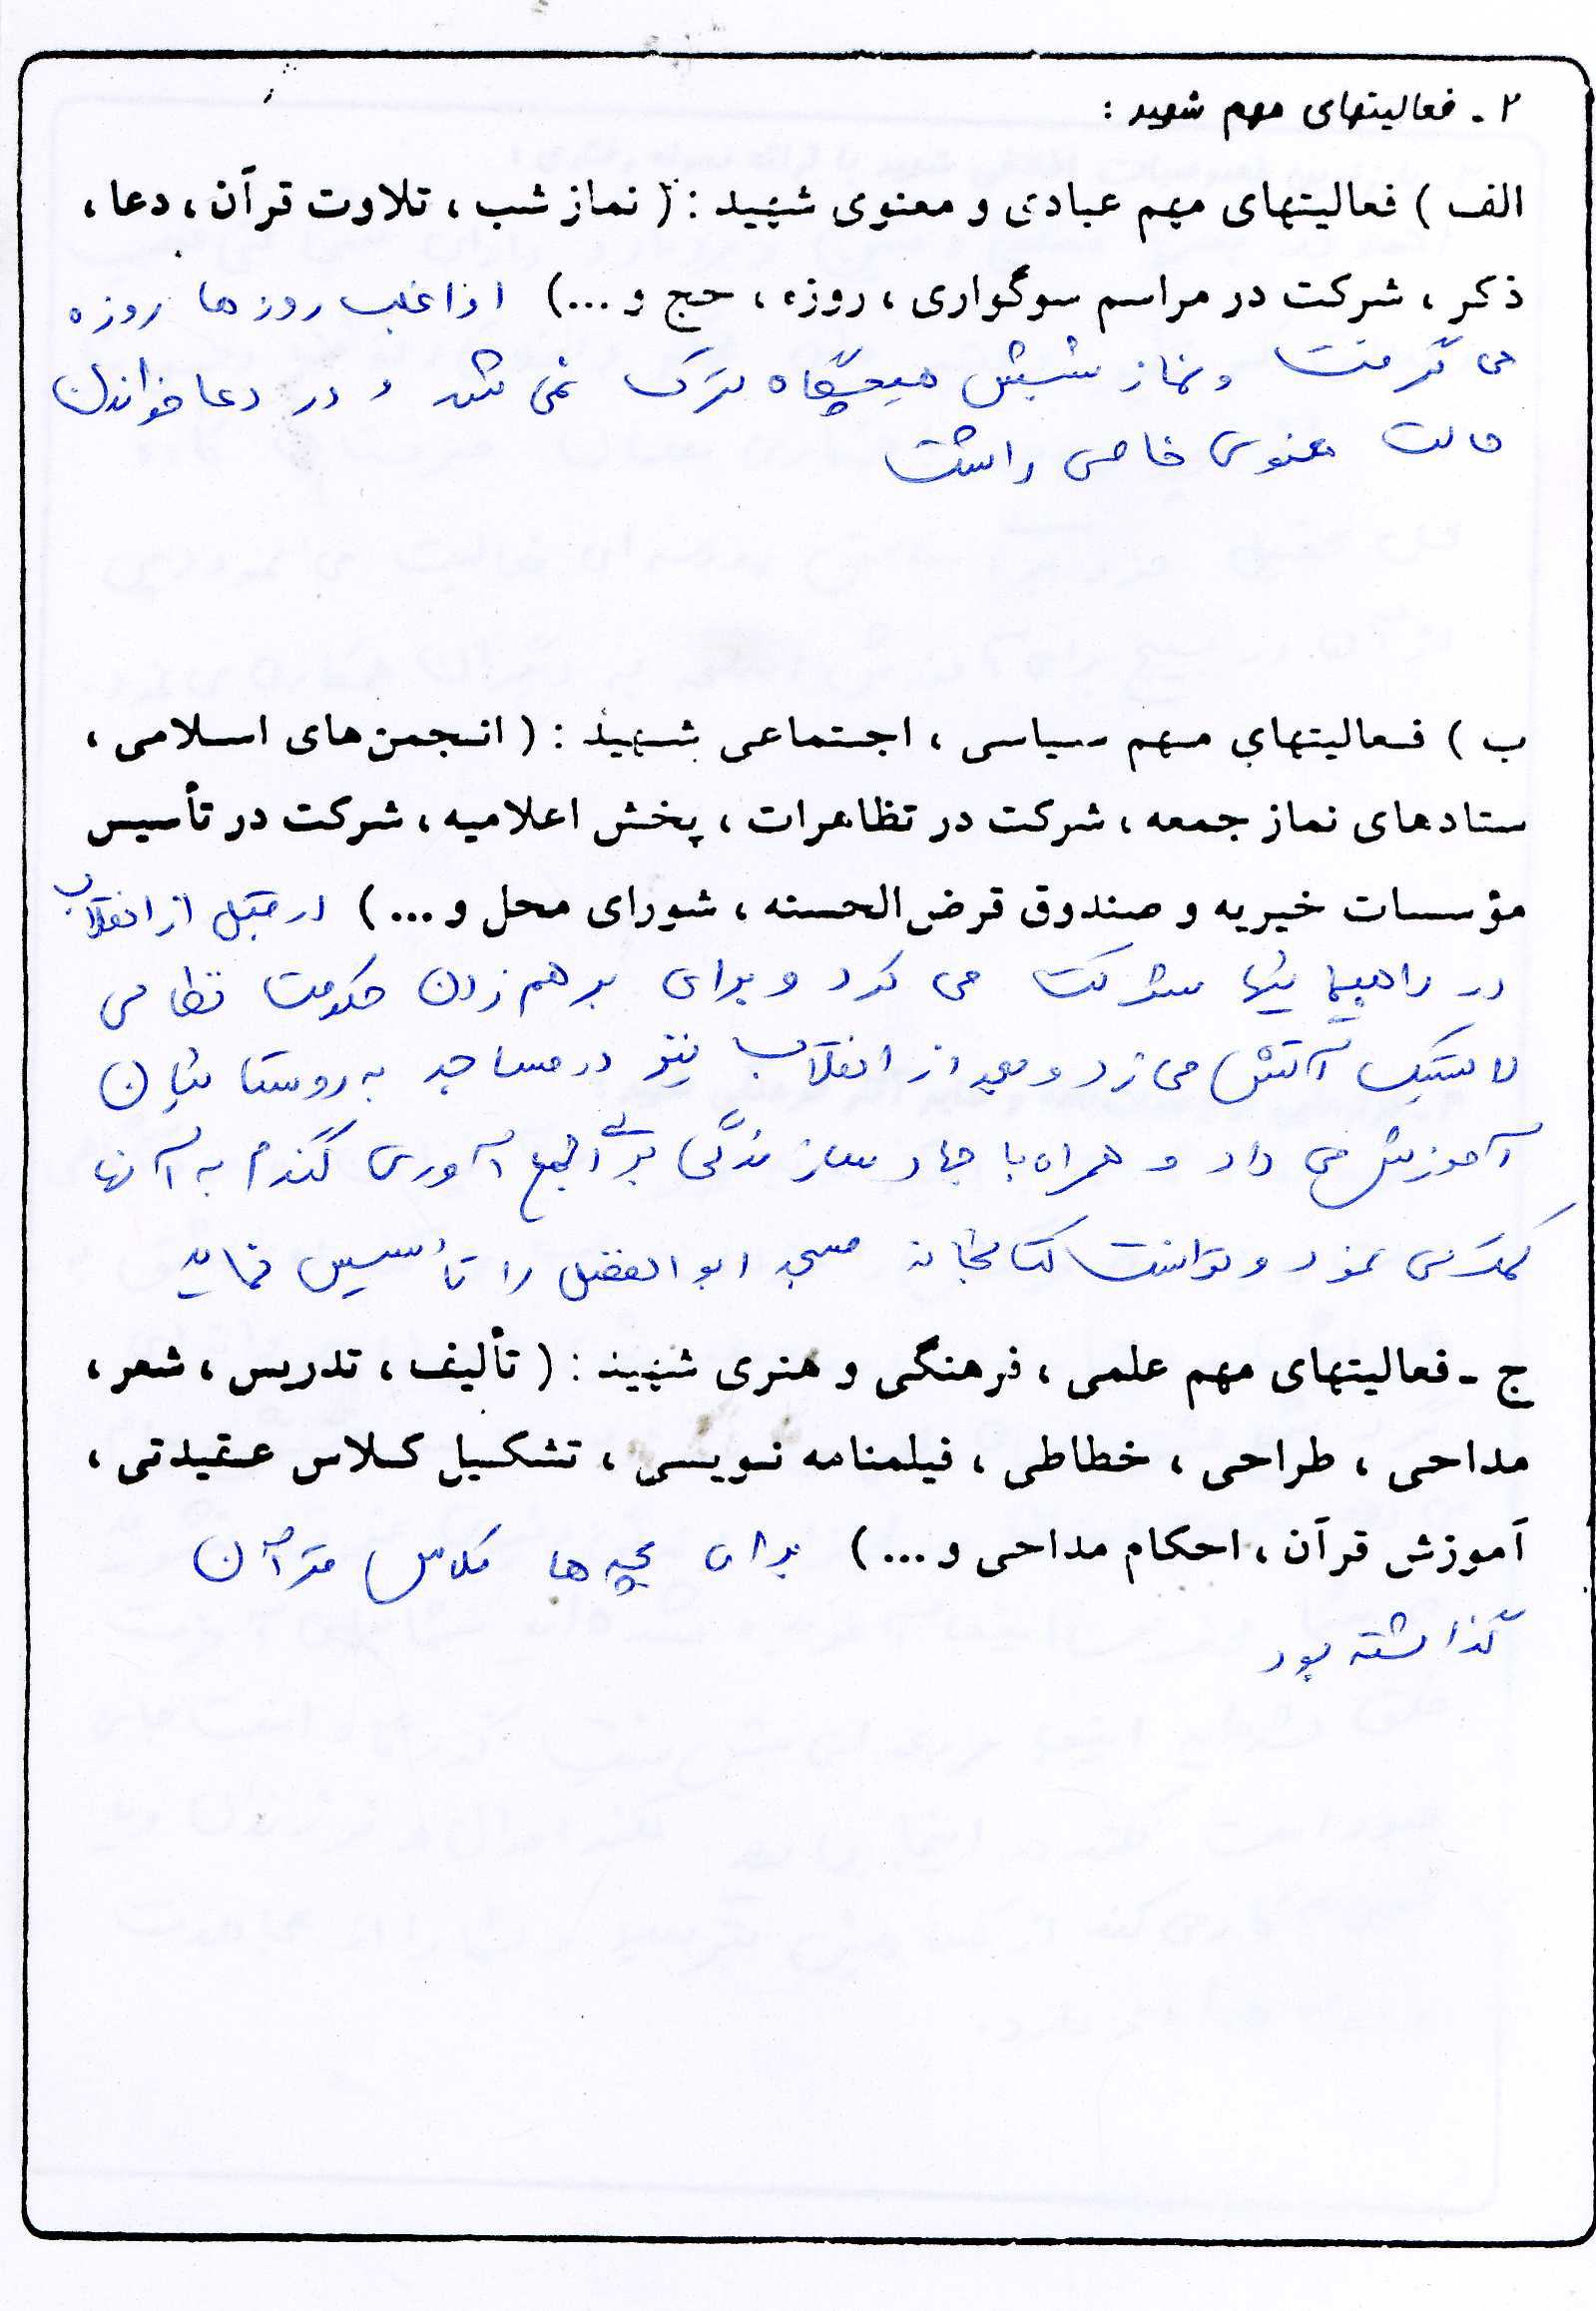 ۲ - فعالیتهای مهم شهید :
الف ) فعالیتهای مهم عبادی و معنوی شهید : ( نماز شب ، تلاوت قرآن ، دعا ،
ذکر ، شرکت در مراسم سوگواری ، روزه ، حج و ...) او اغلب روزها روزه
می گرفت و نماز شبش هیچگاه ترک نمی شد و در دعا خواندن
حالت معنوی خاصی داشت
ب ) فعالیتهای مهم سیاسی ، اجتماعی شهید : ( انجمن های اسلامی ،
ستادهای نماز جمعه ، شرکت در تظاهرات ، پخش اعلامیه ، شرکت در تأسیس
مؤسسات خیریه و صندوق قرض الحسنه ، شورای محل و ...) در قبل از انقلاب
در راهپیمائیها شرکت می کرد و برای بر هم زدن حکومت نظامی
لاستیک آتش می زد و بعد از انقلاب نیز در مساجد به روستائیان
آموزش می داد و همراه با جهاد سازندگی برای جمع آوری گندم به آنها
کمک می نمود و توانست کتابخانه مسجد ابوالفضل را تأسیس نماید
ج - فعالیتهای مهم علمی ، فرهنگی و هنری شهید : ( تألیف ، تدریس ، شعر ،
مداحی ، طراحی ، خطاطی ، فیلمنامه نویسی ، تشکیل کلاس عقیدتی ،
آموزش قرآن ، احکام مداحی و ...) برای بچه ها کلاس قرآن
گذاشته بود